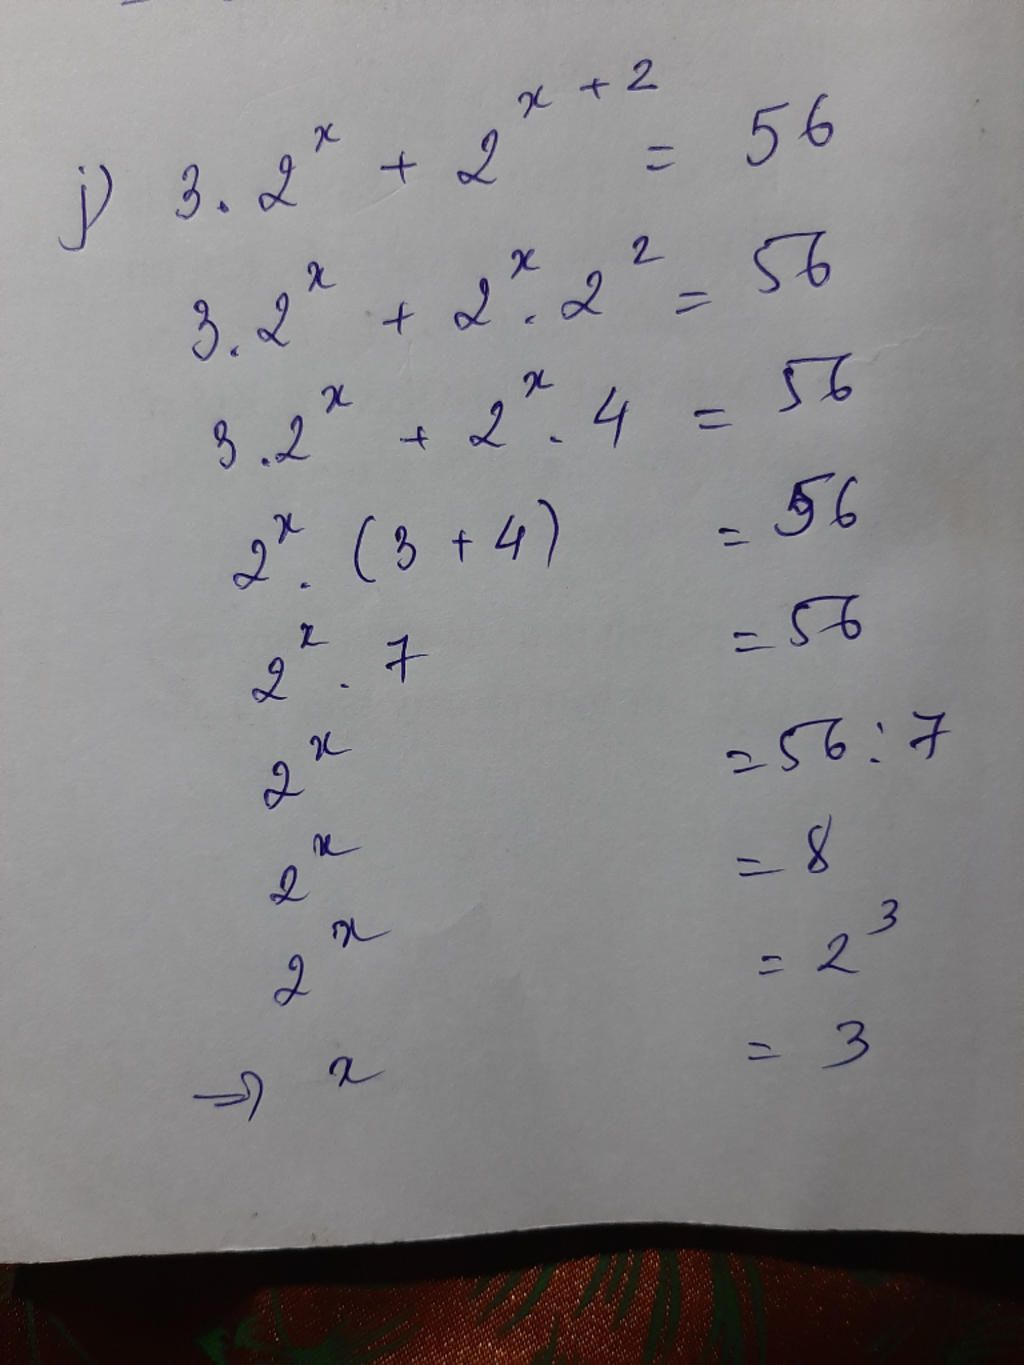 j) 3. 2^x + 2^{x+2} = 56
3. 2^x + 2^x . 2^2 = 56
3 . 2^x + 2^x . 4 = 56
2^x . (3 + 4) = 56
2^x . 7 = 56
2^x = 56 : 7
2^x = 8
2^x = 2^3
⇒ x = 3